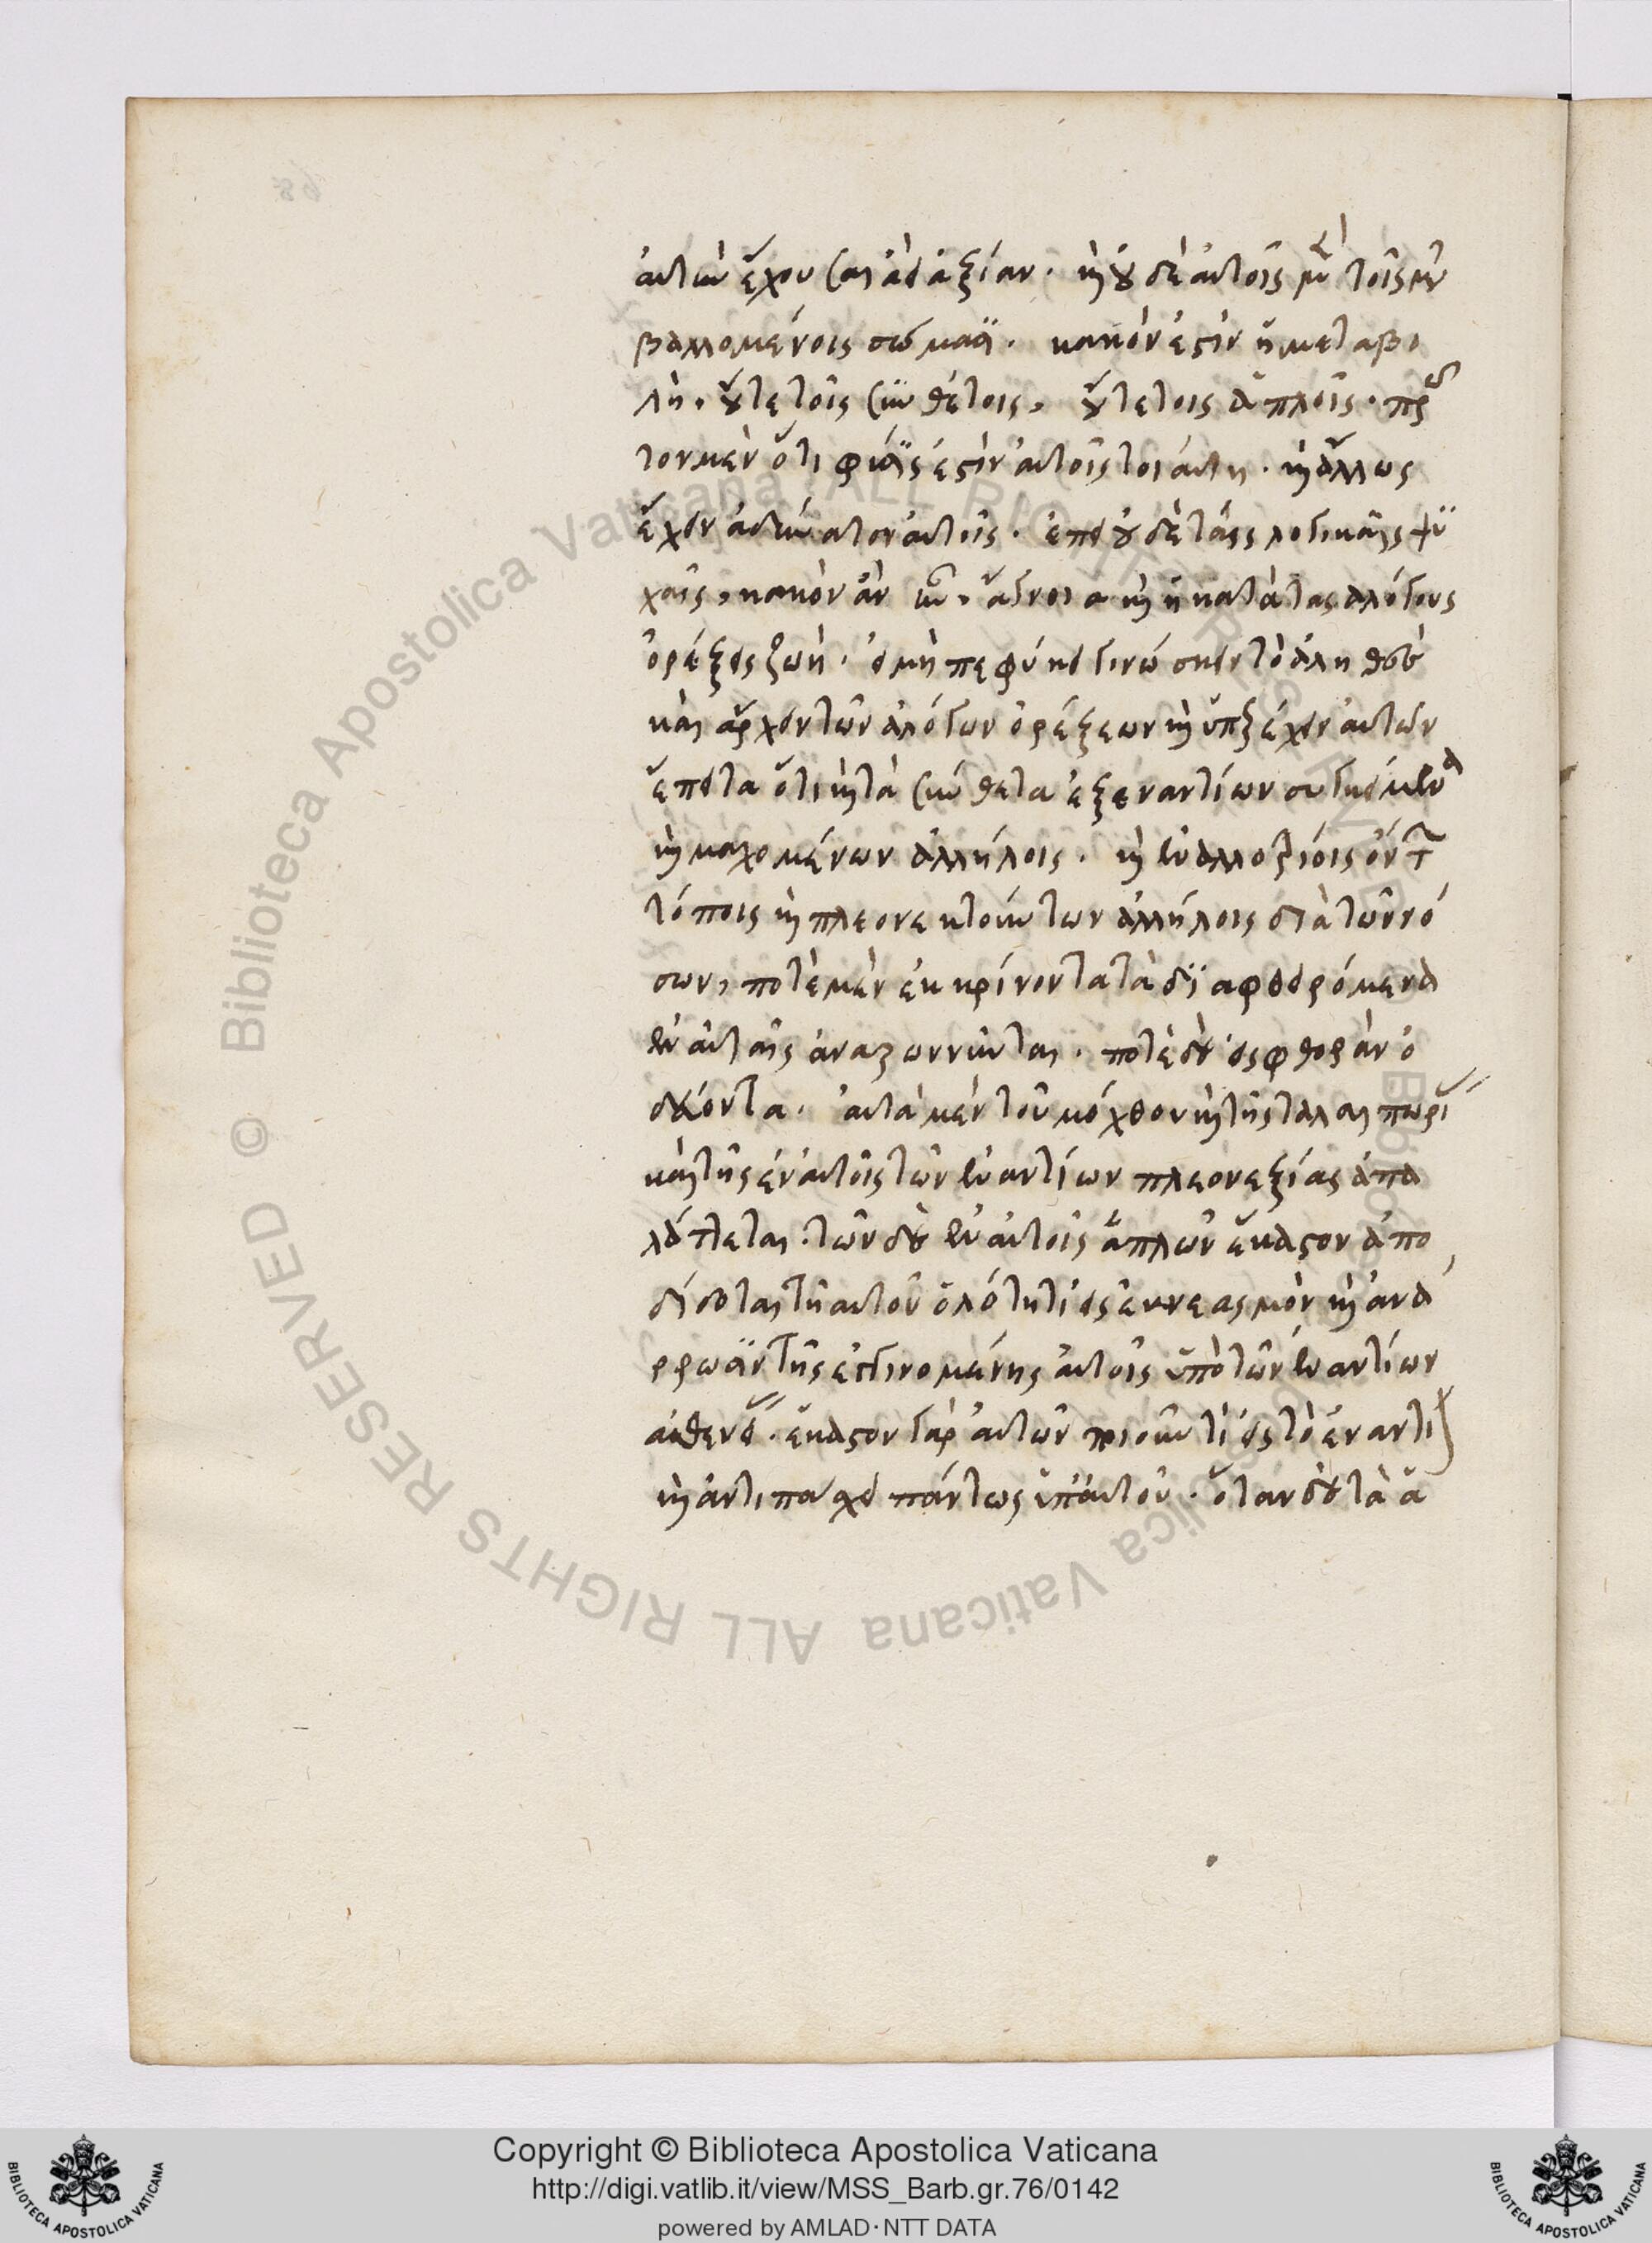 αὐτῶν ἔχουσαι ἀεὶ ἀξίαν. καὶ οὐδὲ αὐτοῖς μὲν τοῖς μετα
βαλλομένοις σώμασι. κακόν ἐστιν ἡ μεταβο
λὴ, οὔτε τοῖς συνθέτοις, οὔτε τοῖς ἁπλοῖς. πρῶ
τον μὲν ὅτι φύσις ἐστὶν αὐτοῖς τοιαύτη. καὶ ἄλλως
ἔχειν ἀδύνατον αὐτοῖς. ἐπεὶ οὐδὲ ταῖς λογικαῖς ψυ
χαῖς, κακὸν ἂν ἦν, ἄγνοια καὶ ἡ κατὰ τὰς ἀλόγους
ὀρέξεις ζωὴ. εἰ μὴ πεφύκει γινώσκειν τὸ ἀληθὲς
καὶ ἄρχειν τῶν ἀλόγων ὀρέξεων καὶ ὑπερέχειν αὐτῶν
ἔπειτα ὅτι καὶ τὰ σύνθετα ἐξ ἐναντίων συγκείμενα
καὶ μαχομένων ἀλλήλοις. καὶ ἐν ἀλλοτρίοις ὄντων
τόποις καὶ πλεονεκτούντων ἀλλήλοις διὰ τῶν νό
σων, ποτὲ μὲν ἐκκρίνοντα τὰ διαφθειρόμενα
ἐν αὐταῖς ἀναζωννύνται. ποτὲ δὲ εἰς φθορὰν ὁ
δεύοντα. αὐτὰ μὲν τοῦ μόχθου καὶ τῆς ταλαιπωρίας
καὶ τῆς ἐν αὐτοῖς τῶν ἐναντίων πλεονεξίας ἀπα
λάττεται. τῶν δὲ ἐν αὐτοῖς ἁπλῶν ἕκαστον ἀπο
δίδοται τῇ αὐτοῦ ὁλότητι εἰς ἐκνεασμὸν καὶ ἀνά
ρρωσιν τῆς ἐγγινομένης αὐτοῖς ὑπὸ τῶν ἐναντίων
ἀσθενείας. ἕκαστον γὰρ αὐτῶν ποιοῦν τι εἰς τὸ ἐναντίον
καὶ ἀντιπάσχει πάντως ὑπ' αὐτοῦ. ὅταν δὲ τὰ ἁ